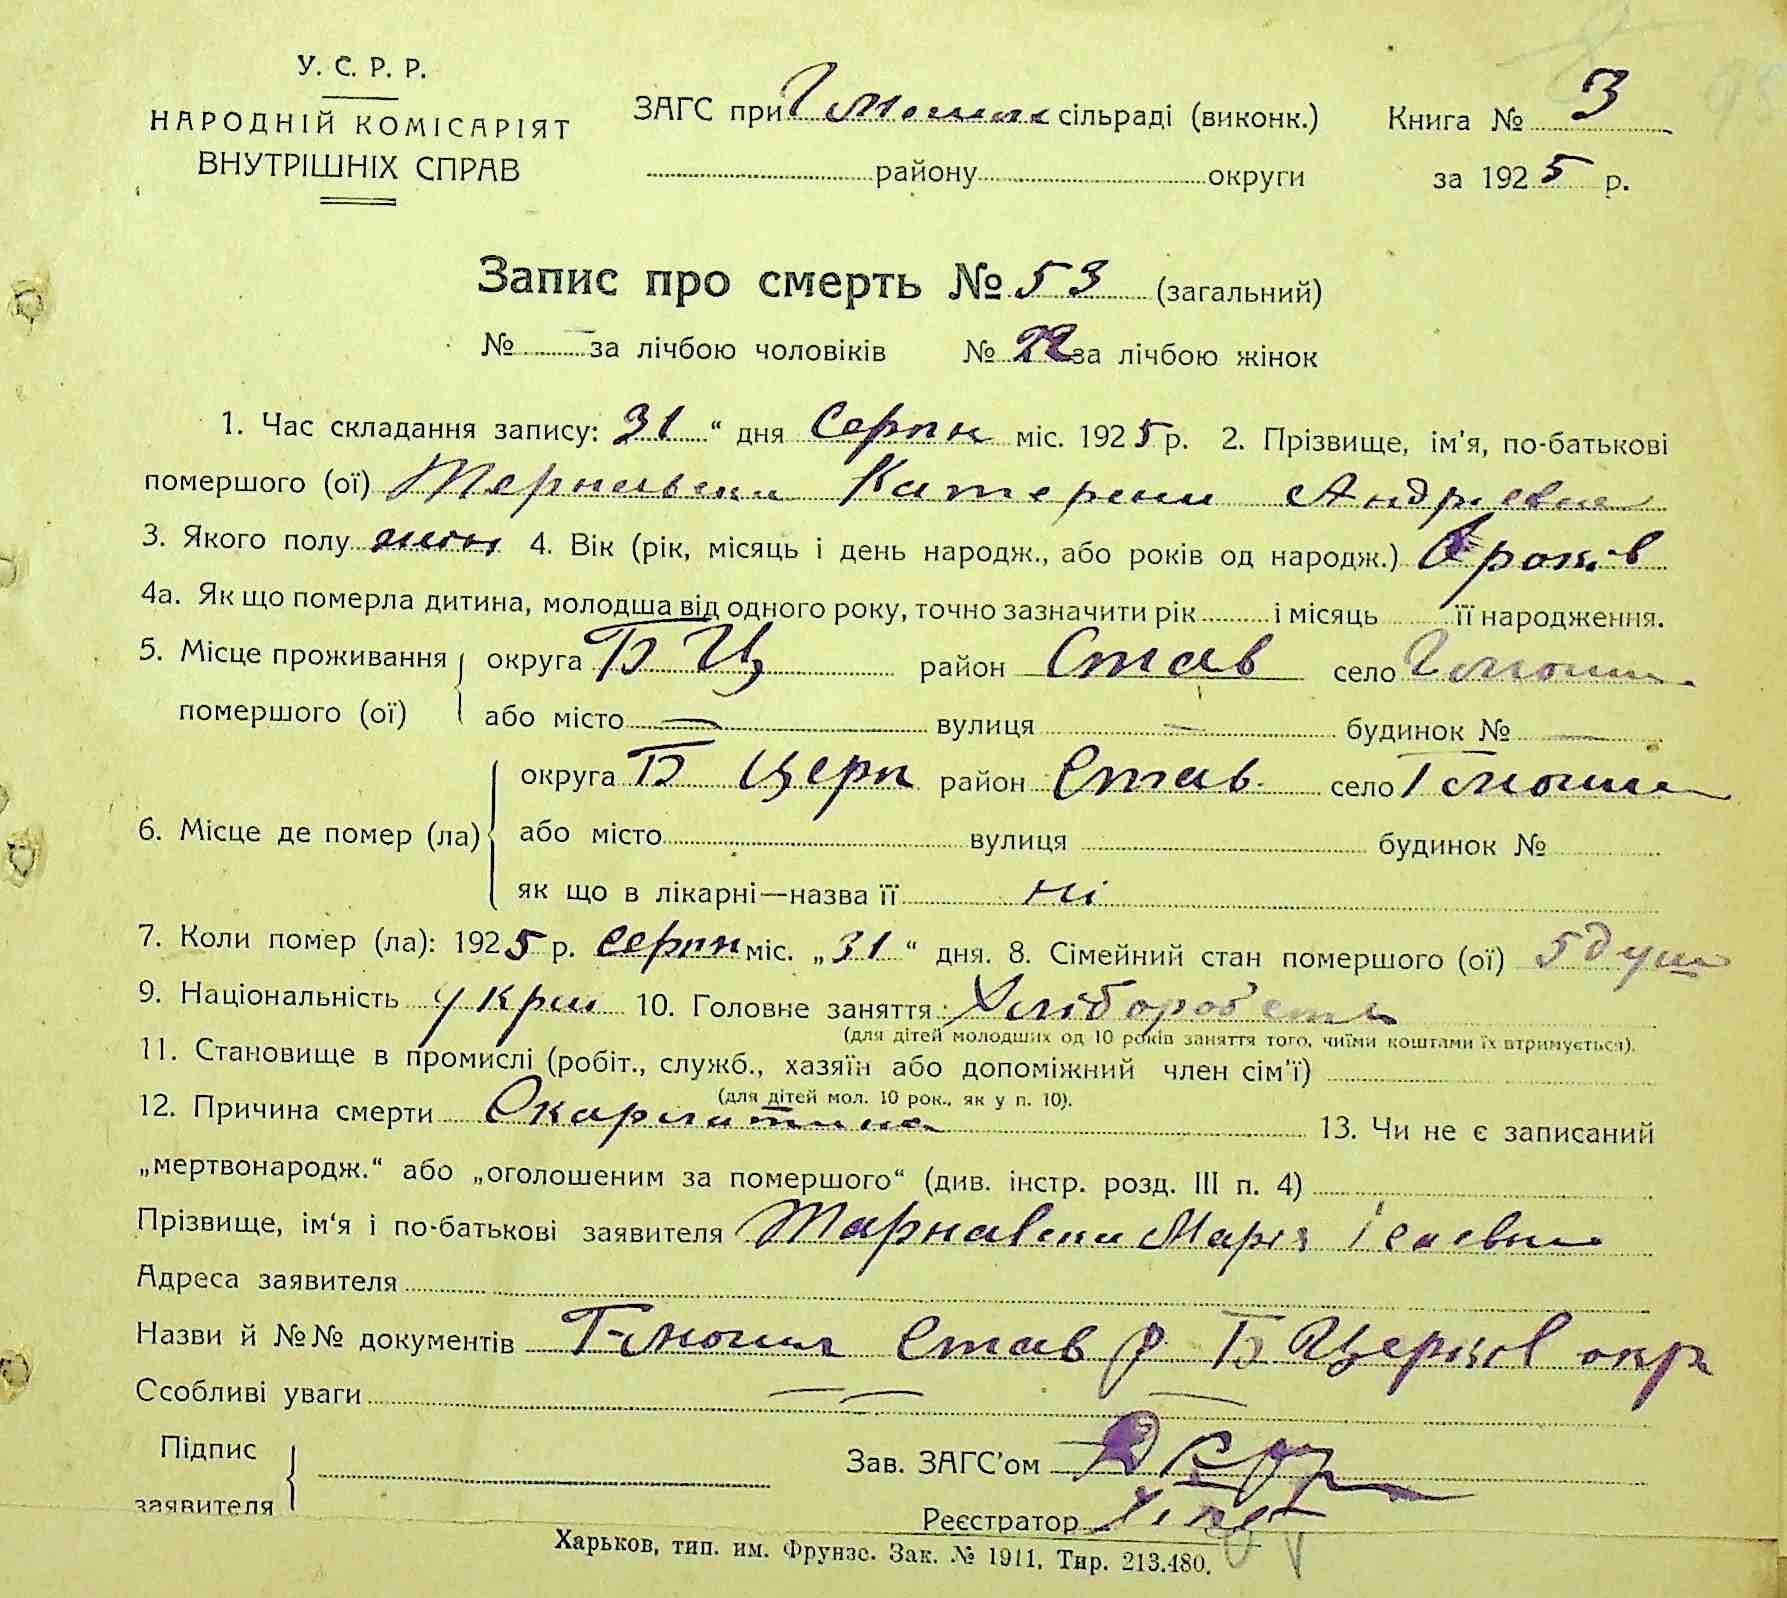 У. С. Р. Р.
НАРОДНІЙ КОМІСАРІЯТ
ВНУТРІШНІХ СПРАВ
ЗАГС при сільраді (виконк.)
району округи
Книга № 3
за 1925 р.
Запис про смерть № 53 (загальний)
№ — за лічбою чоловіків № 22 за лічбою жінок
1. Час складання запису: 31 “ дня Серпн міс. 1925 р. 2. Прізвище, ім'я, по-батькові
помершого (ої) Тернавська Катерени Андрієвна
3. Якого полу жін 4. Вік (рік, місяць і день народж., або років од народж.) років
4а. Як що померла дитина, молодша від одного року, точно зазначити рік і місяць її народження.
5. Місце проживання помершого (ої) округа Б Ц район Став село
або місто — вулиця — будинок № —
6. Місце де помер (ла) округа Б Церк район Став. село
або місто вулиця будинок №
як що в лікарні—назва її ні
7. Коли помер (ла): 1925 р. серпн міс. „31“ дня. 8. Сімейний стан помершого (ої) 5 душ
9. Національність укр 10. Головне заняття: Хлібороб'ство
(для дітей молодших од 10 років заняття того, чиїми коштами їх втримується).
11. Становище в промислі (робіт., служб., хазяїн або допоміжний член сім'ї)
(для дітей мол. 10 рок., як у п. 10).
12. Причина смерти Скарлатина 13. Чи не є записаний
„мертвонародж.“ або „оголошеним за помершого“ (див. інстр. розд. III п. 4)
Прізвище, ім‘я і по-батькові заявителя Тарнавська Марія Ісаевна
Адреса заявителя
Назви й №№ документів Став р Б Церков окр
Особливі уваги — — —
Підпис заявителя
Зав. ЗАГС'ом
Реєстратор
Харьков, тип. им. Фрунзе. Зак. № 1911. Тир. 213.480.